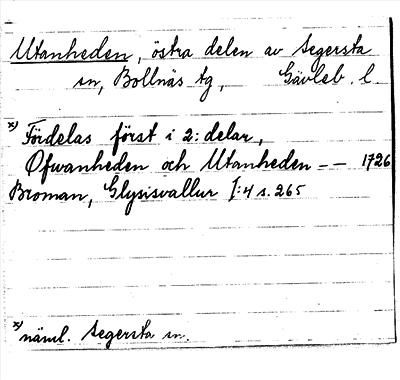 Utanheden, östra delen av Segersta
sn, Bollnäs tg, Gävleb. l.
x) Fördelas först i 2: delar,
Ofwanheden och Utanheden — — 1726
Broman, Glysisvallur I:4 s. 265
x) näml. Segersta sn.